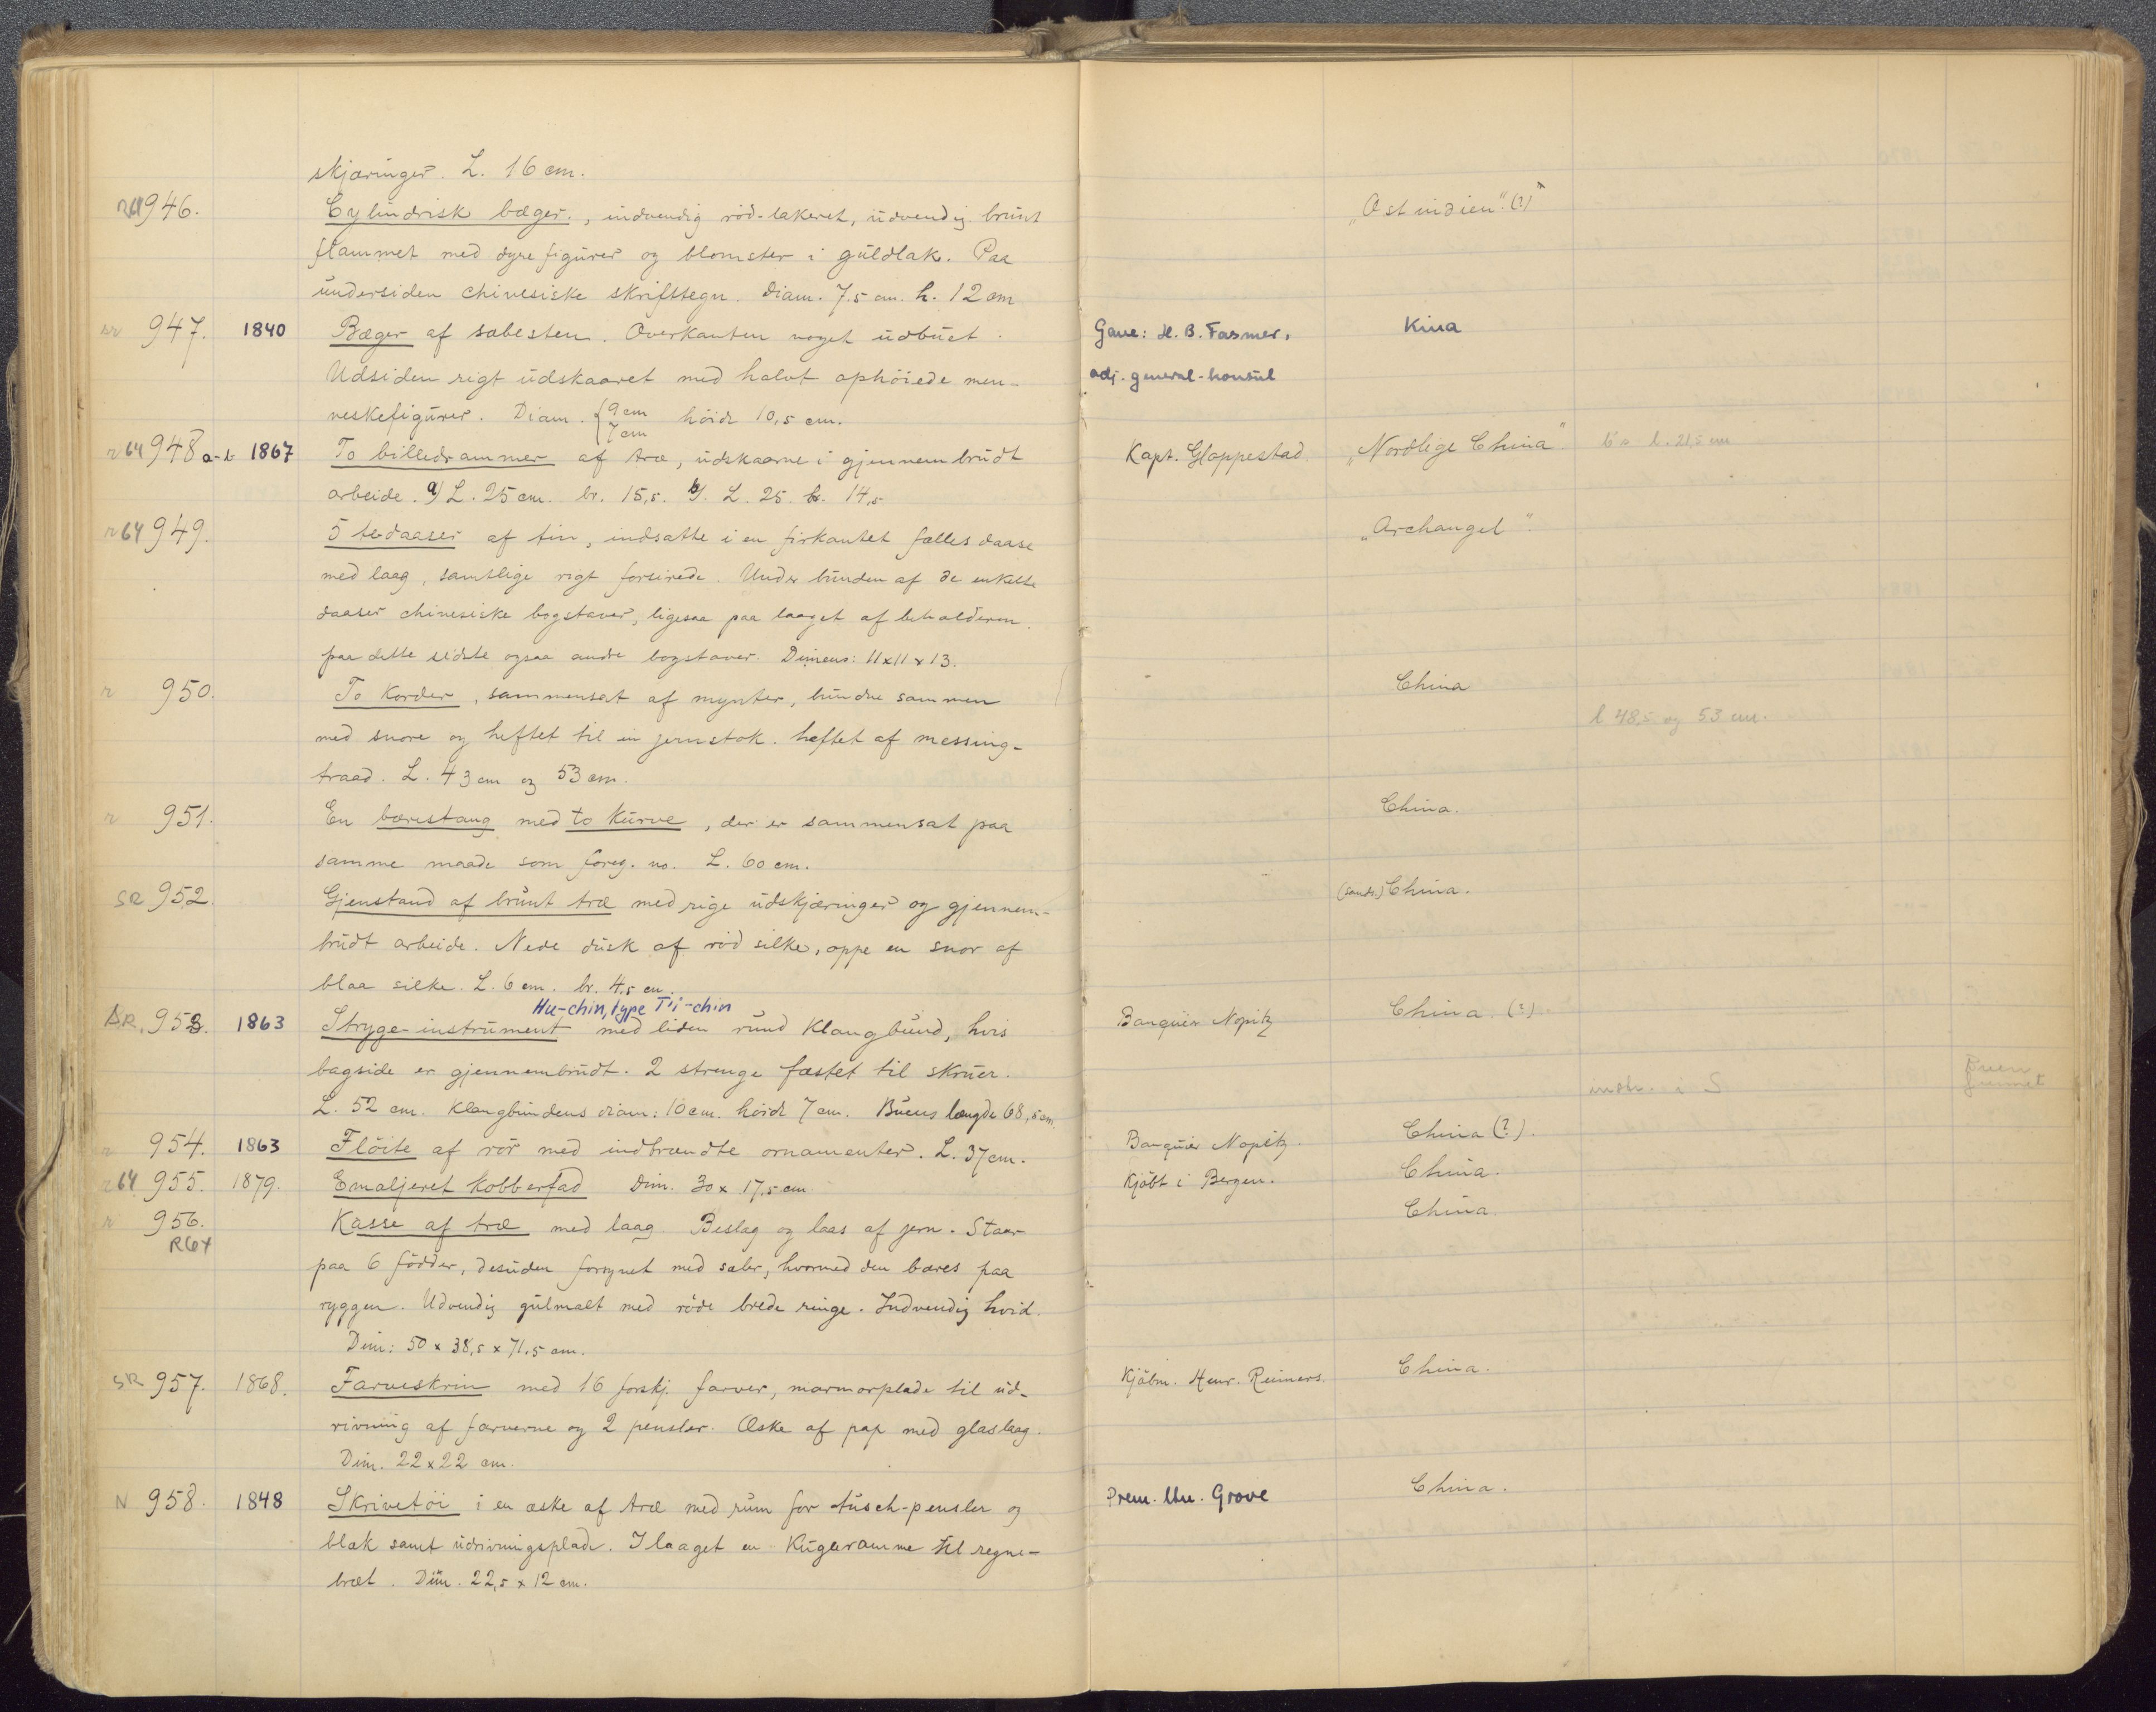 skjæringer. L. 16 cm.
946. Cylindrisk bæger., indvendig röd-lakeret, udvendig brunt "Ostindien" (?)
flammet med dyrefigurer og blomster i guldlak. Paa
undersiden chinesiske skrifttegn. Diam. 7.5 cm. h. 12 cm
sr 947. 1840 Bæger af sæbesten. Overkanten noget udbuet. Gave: H. B. Fasmer, Kina
Udsiden rigt udskaaret med halvt ophöiede men- adj. general-konsul
neskefigurer. Diam. {9 cm höide 10,5 cm.
7 cm
r64 948 a-b 1867 To billedrammer af træ, udskaarne i gjennembrudt Kapt. Gloppestad "Nordlige China". b's l. 21,5 cm
arbeide. a) L. 25 cm. br. 15,5. b). L. 25. br. 14,5
r64 949. 5 tedaaser af tin, indsatte i en firkantet fælles daase "Archangel".
med laag, samtlige rigt forsirede. Under bunden af de enkelte
daaser chinesiske bogstaver, ligesaa paa laaget af beholderen.
paa dette sidste ogsaa andre bogstaver. Dimens: 11x11x13.
r 950. To Korder, sammensat af mynter, bundne sammen China
med snore og heftet til en jernstok. hæftet af messing- l 48,5 og 53 cm.
traad. L. 43 cm og 53 cm.
r 951. En bærestang med to Kurve, der er sammensat paa China.
samme maade som foreg. no. L. 60 cm.
SR 952. Gjenstand af brunt træ med rige udskjæringer og gjennem- (sands.) China.
brudt arbeide. Nede dusk af röd silke, oppe en snor af
blaa silke. L. 6 cm. br. 4,5 cm.
Hu-chin, type T'i-chin
SR. 953. 1863 Stryge-instrument med liden rund Klangbund, hvis Banquier Nopitz China. (?)
bagside er gjennembrudt. 2 strenge fæstet til skruer.
L. 52 cm. Klangbundens diam: 10 cm. höide 7 cm. Buens længde 68,5 cm.
r 954. 1863 Flöite af rör med indbrændte ornamenter. L. 37 cm. Banquier Nopitz. China (?).
r64 955. 1879. Emaljeret Kobberfad Dim. 30 x 17,5 cm Kjöbt i Bergen. China.
r 956. Kasse af træ med laag. Beslag og laas af jern. Staar China.
R64
paa 6 födder, desuden forsynet med seler, hvormed den bæres paa
ryggen. Udvendig gulmalt med röde brede ringe. Indvendig hvid.
Dim: 50 x 38,5 x 71,5 cm.
SR 957. 1868. Farveskrin med 16 forskj. farver, marmorplade til ud- Kjöbm. Henr. Reimers. China.
rivning af farverne og 2 pensler. Æske af pap med glaslaag.
Dim. 22 x 22 cm.
N 958. 1848 Skrivetöi i en æske af træ med rum for tusch-pensler og Prem. ltn. Grove China.
blæk samt udrivningsplade. I laaget en Kugleramme til regne-
bræt. Dim. 22,5 x 12 cm.